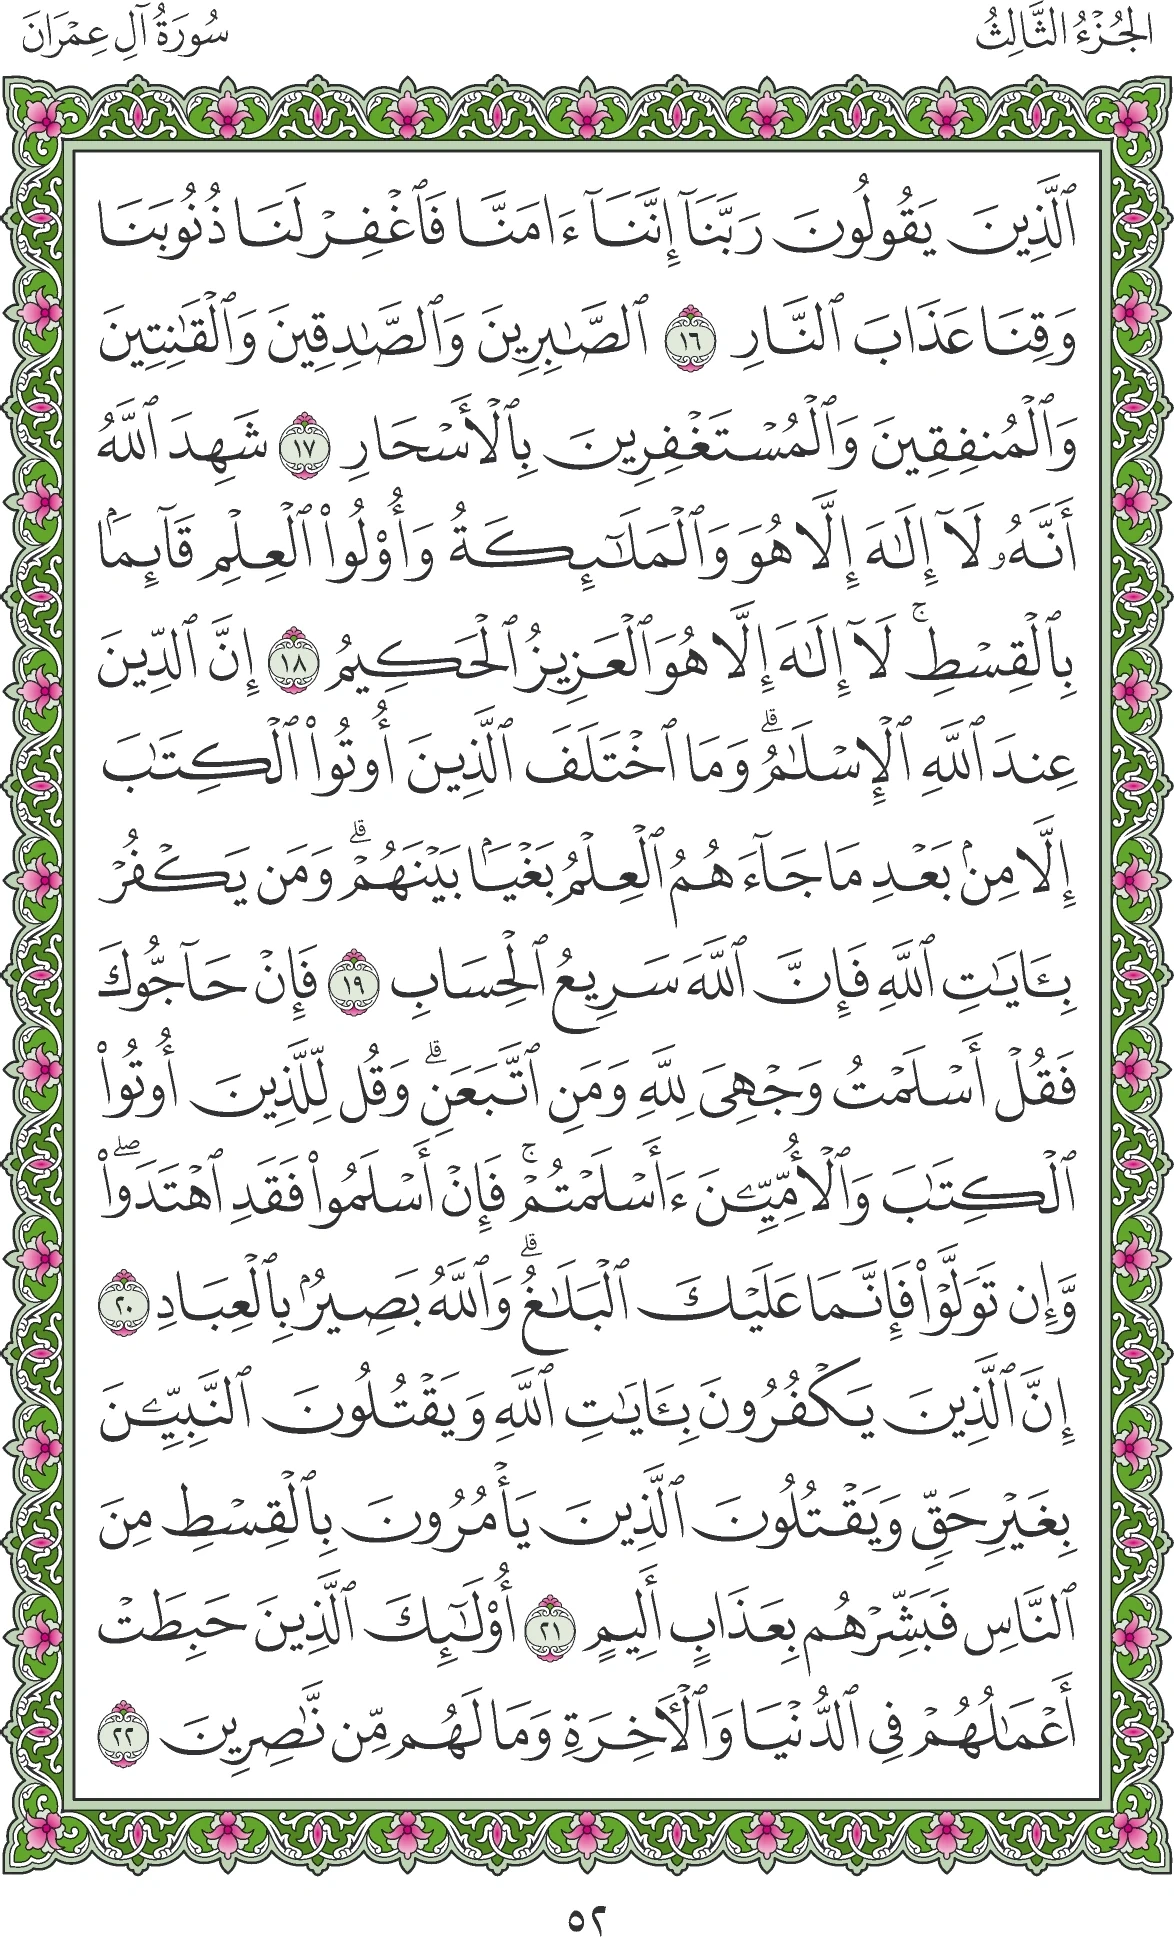 الجُزْءُ الثَّالِثُ
سُورَةُ آلِ عِمْرَانَ
ٱلَّذِينَ يَقُولُونَ رَبَّنَآ إِنَّنَآ ءَامَنَّا فَٱغْفِرْ لَنَا ذُنُوبَنَا
وَقِنَا عَذَابَ ٱلنَّارِ ١٦ ٱلصَّـٰبِرِينَ وَٱلصَّـٰدِقِينَ وَٱلْقَـٰنِتِينَ
وَٱلْمُنفِقِينَ وَٱلْمُسْتَغْفِرِينَ بِٱلْأَسْحَارِ ١٧ شَهِدَ ٱللَّهُ
أَنَّهُۥ لَآ إِلَـٰهَ إِلَّا هُوَ وَٱلْمَلَـٰٓئِكَةُ وَأُو۟لُوا۟ ٱلْعِلْمِ قَآئِمًۢا
بِٱلْقِسْطِ ۚ لَآ إِلَـٰهَ إِلَّا هُوَ ٱلْعَزِيزُ ٱلْحَكِيمُ ١٨ إِنَّ ٱلدِّينَ
عِندَ ٱللَّهِ ٱلْإِسْلَـٰمُ ۗ وَمَا ٱخْتَلَفَ ٱلَّذِينَ أُوتُوا۟ ٱلْكِتَـٰبَ
إِلَّا مِنۢ بَعْدِ مَا جَآءَهُمُ ٱلْعِلْمُ بَغْيًۢا بَيْنَهُمْ ۗ وَمَن يَكْفُرْ
بِـَٔايَـٰتِ ٱللَّهِ فَإِنَّ ٱللَّهَ سَرِيعُ ٱلْحِسَابِ ١٩ فَإِنْ حَآجُّوكَ
فَقُلْ أَسْلَمْتُ وَجْهِىَ لِلَّهِ وَمَنِ ٱتَّبَعَنِ ۗ وَقُل لِّلَّذِينَ أُوتُوا۟
ٱلْكِتَـٰبَ وَٱلْأُمِّيِّـۧنَ ءَأَسْلَمْتُمْ ۚ فَإِنْ أَسْلَمُوا۟ فَقَدِ ٱهْتَدَوا۟ ۖ
وَّإِن تَوَلَّوْا۟ فَإِنَّمَا عَلَيْكَ ٱلْبَلَـٰغُ ۗ وَٱللَّهُ بَصِيرٌۢ بِٱلْعِبَادِ ٢٠
إِنَّ ٱلَّذِينَ يَكْفُرُونَ بِـَٔايَـٰتِ ٱللَّهِ وَيَقْتُلُونَ ٱلنَّبِيِّـۧنَ
بِغَيْرِ حَقٍّ وَيَقْتُلُونَ ٱلَّذِينَ يَأْمُرُونَ بِٱلْقِسْطِ مِنَ
ٱلنَّاسِ فَبَشِّرْهُم بِعَذَابٍ أَلِيمٍ ٢١ أُو۟لَـٰٓئِكَ ٱلَّذِينَ حَبِطَتْ
أَعْمَـٰلُهُمْ فِى ٱلدُّنْيَا وَٱلْـَٔاخِرَةِ وَمَا لَهُم مِّن نَّـٰصِرِينَ ٢٢
٥٢